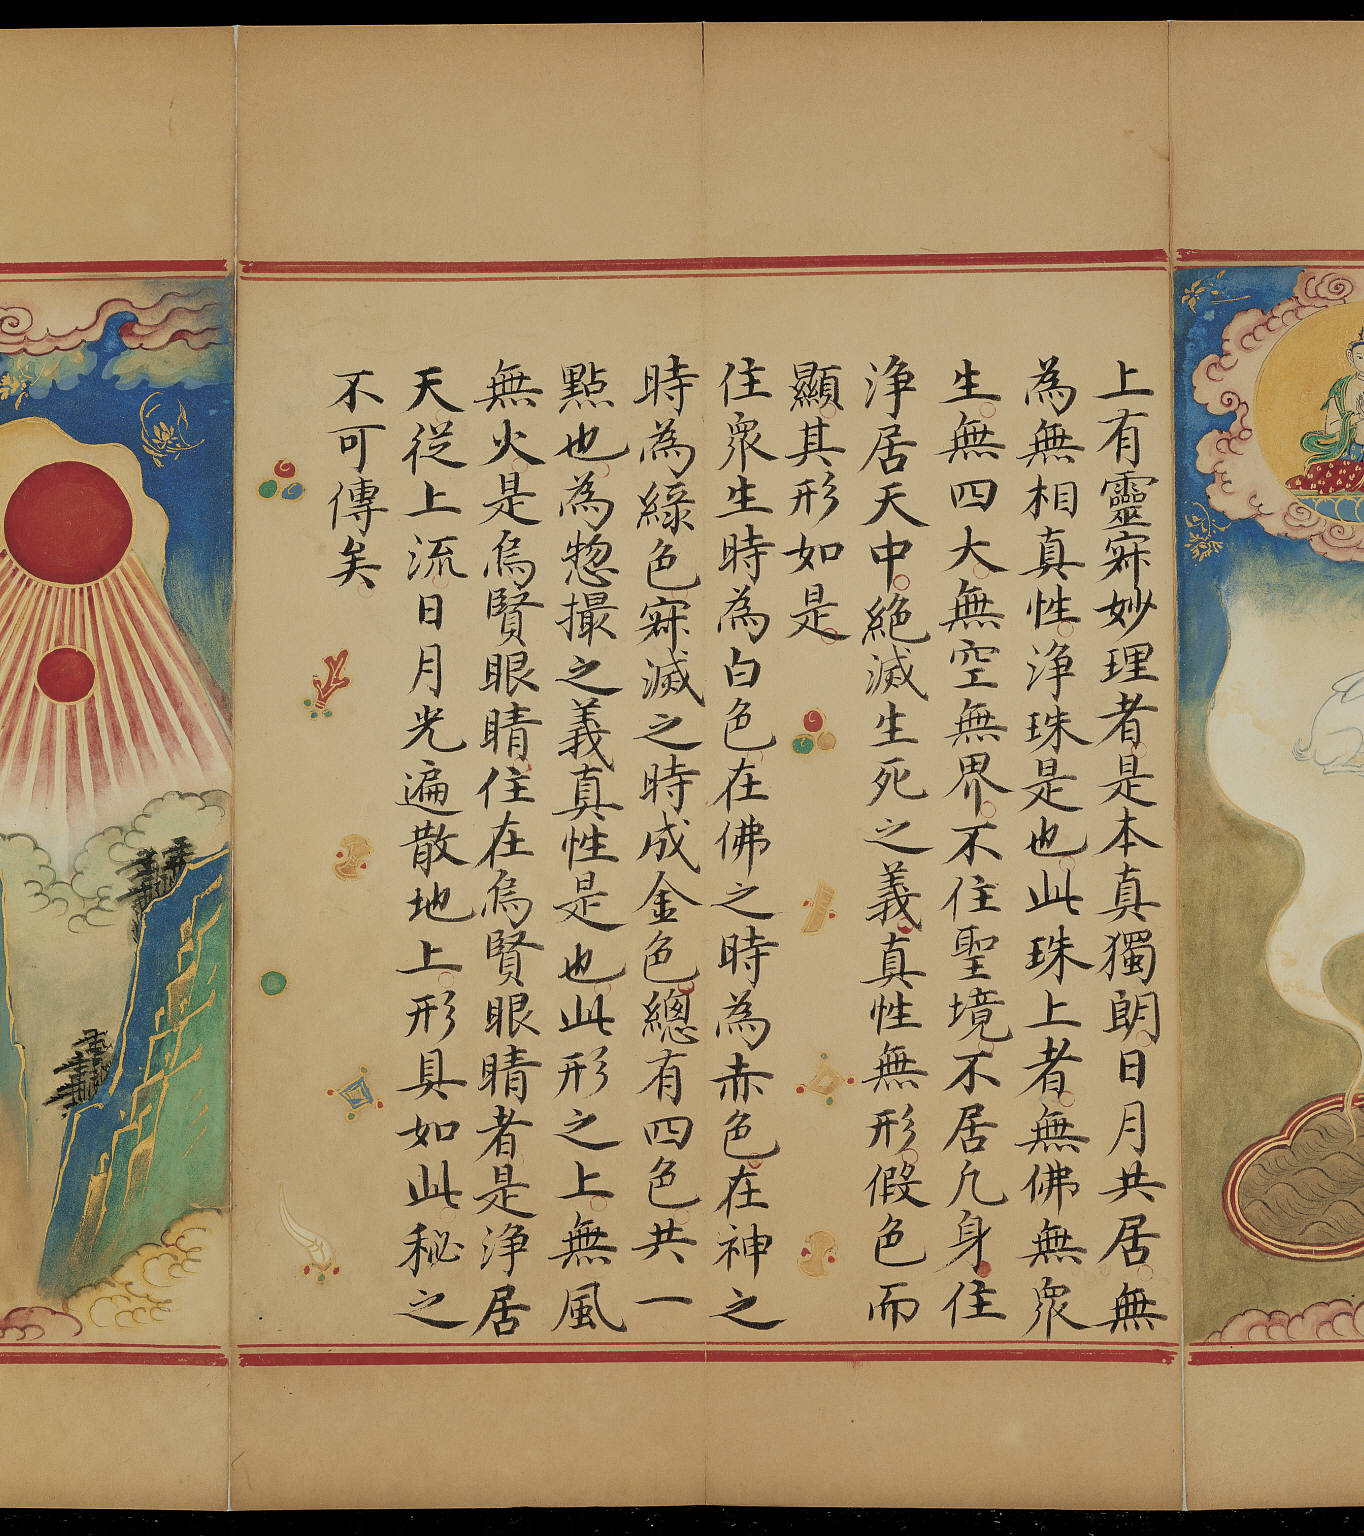 上有靈寂妙理者是本真獨朗日月共居無
為無相真性淨珠是也此珠上者無佛無眾
生無四大無空無界不住聖境不居凡身住
淨居天中絕滅生死之義真性無形假色而
顯其形如是
住眾生時為白色在佛之時為赤色在神之
時為綠色寂滅之時成金色總有四色共一
點也為惣撮之義真性是也此形之上無風
無火是烏賢眼睛住在烏賢眼睛者是淨居
天從上流日月光遍散地上形具如此秘之
不可傳矣